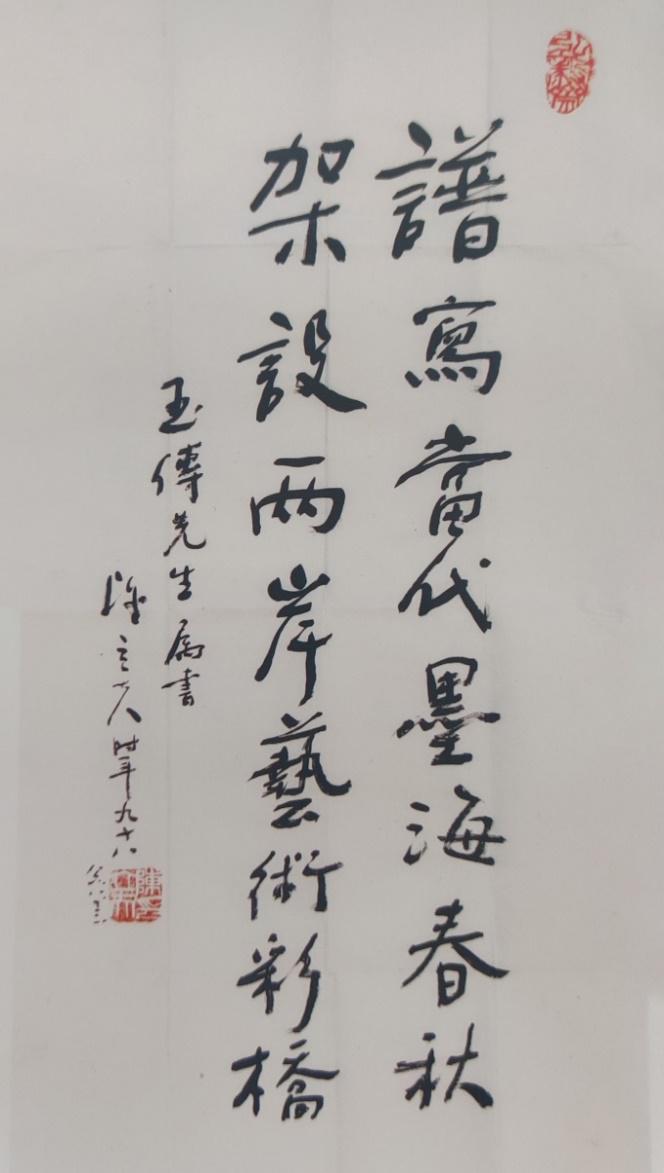 譜寫當代墨海春秋
架設兩岸藝術彩橋
玉傳先生属書
陳立夫時年九十八